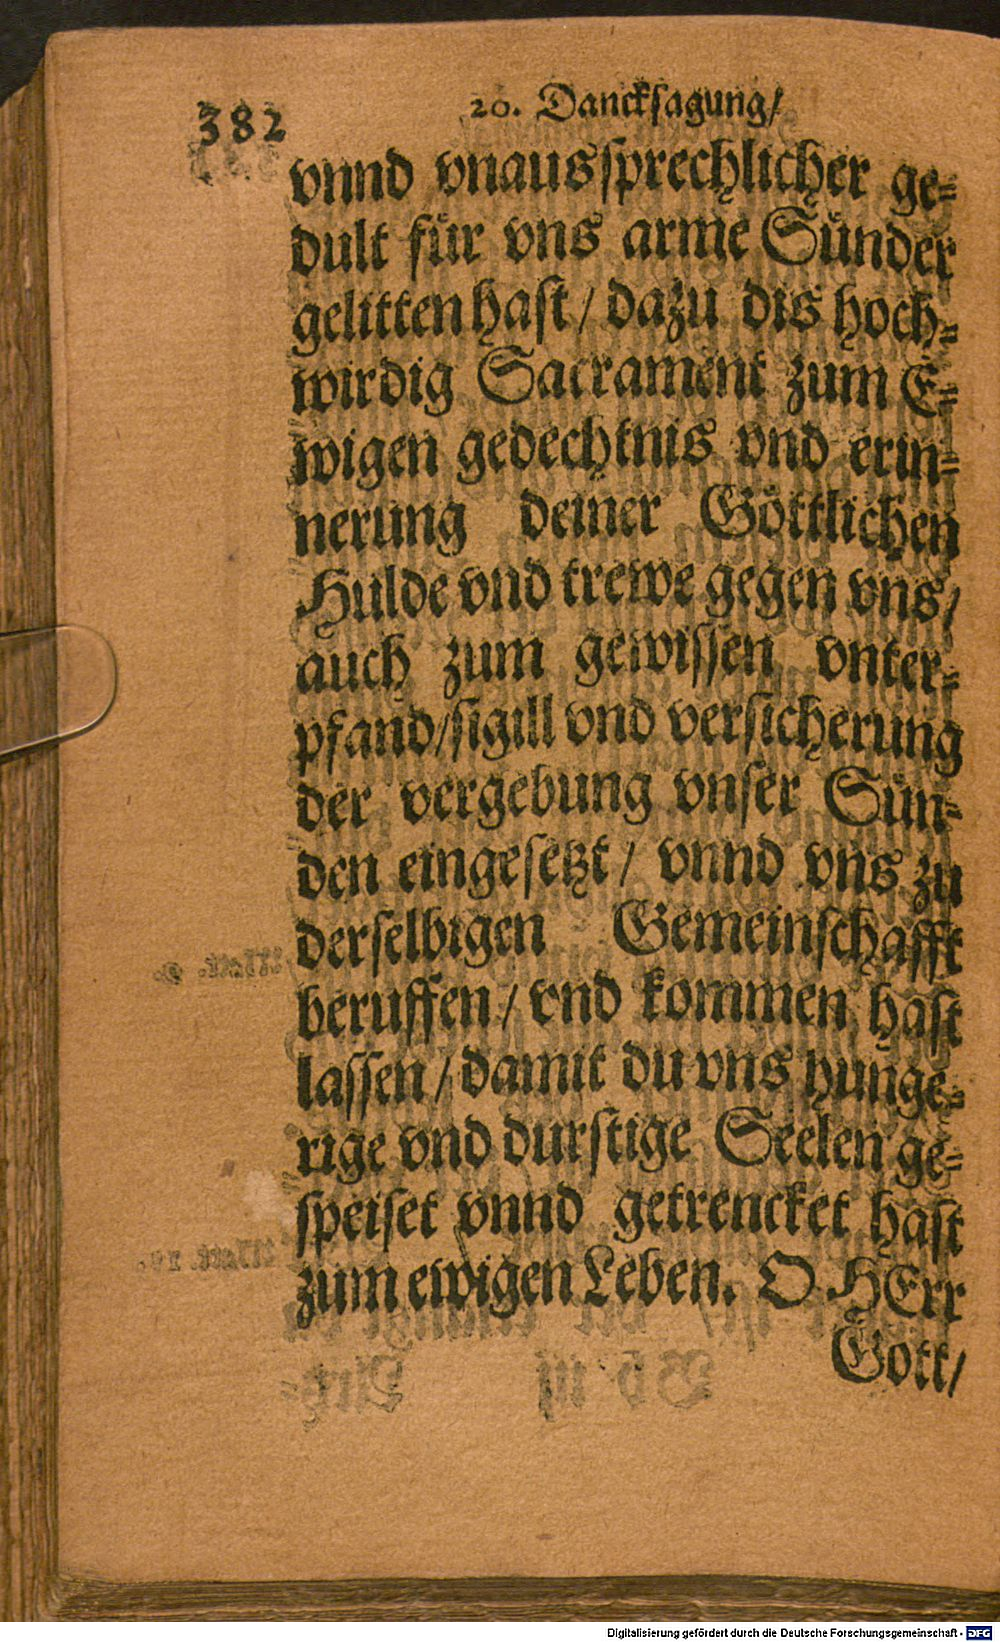 382
20. Danckſagung/
vnnd vnausſprechlicher ge-
dult für vns arme Sünder
gelitten haſt / dazu dis hoch-
wirdig Sacrament zum E-
wigen gedechtnis vnd erin-
nerung deiner Göttlichen
Hulde vnd trewe gegen vns/
auch zum gewiſſen vnter-
pfand/ſigill vnd verſicherung
der vergebung vnſer Sün-
den eingeſetzt / vnnd vns zu
derſelbigen Gemeinſchafft
beruffen / vnd kommen haſt
laſſen / damit du vns hunge-
rige vnd durſtige Seelen ge-
ſpeiſet vnnd getrencket haſt
zum ewigen Leben. O HErr
Gott/
Digitalisierung gefördert durch die Deutsche Forschungsgemeinschaft - DFG